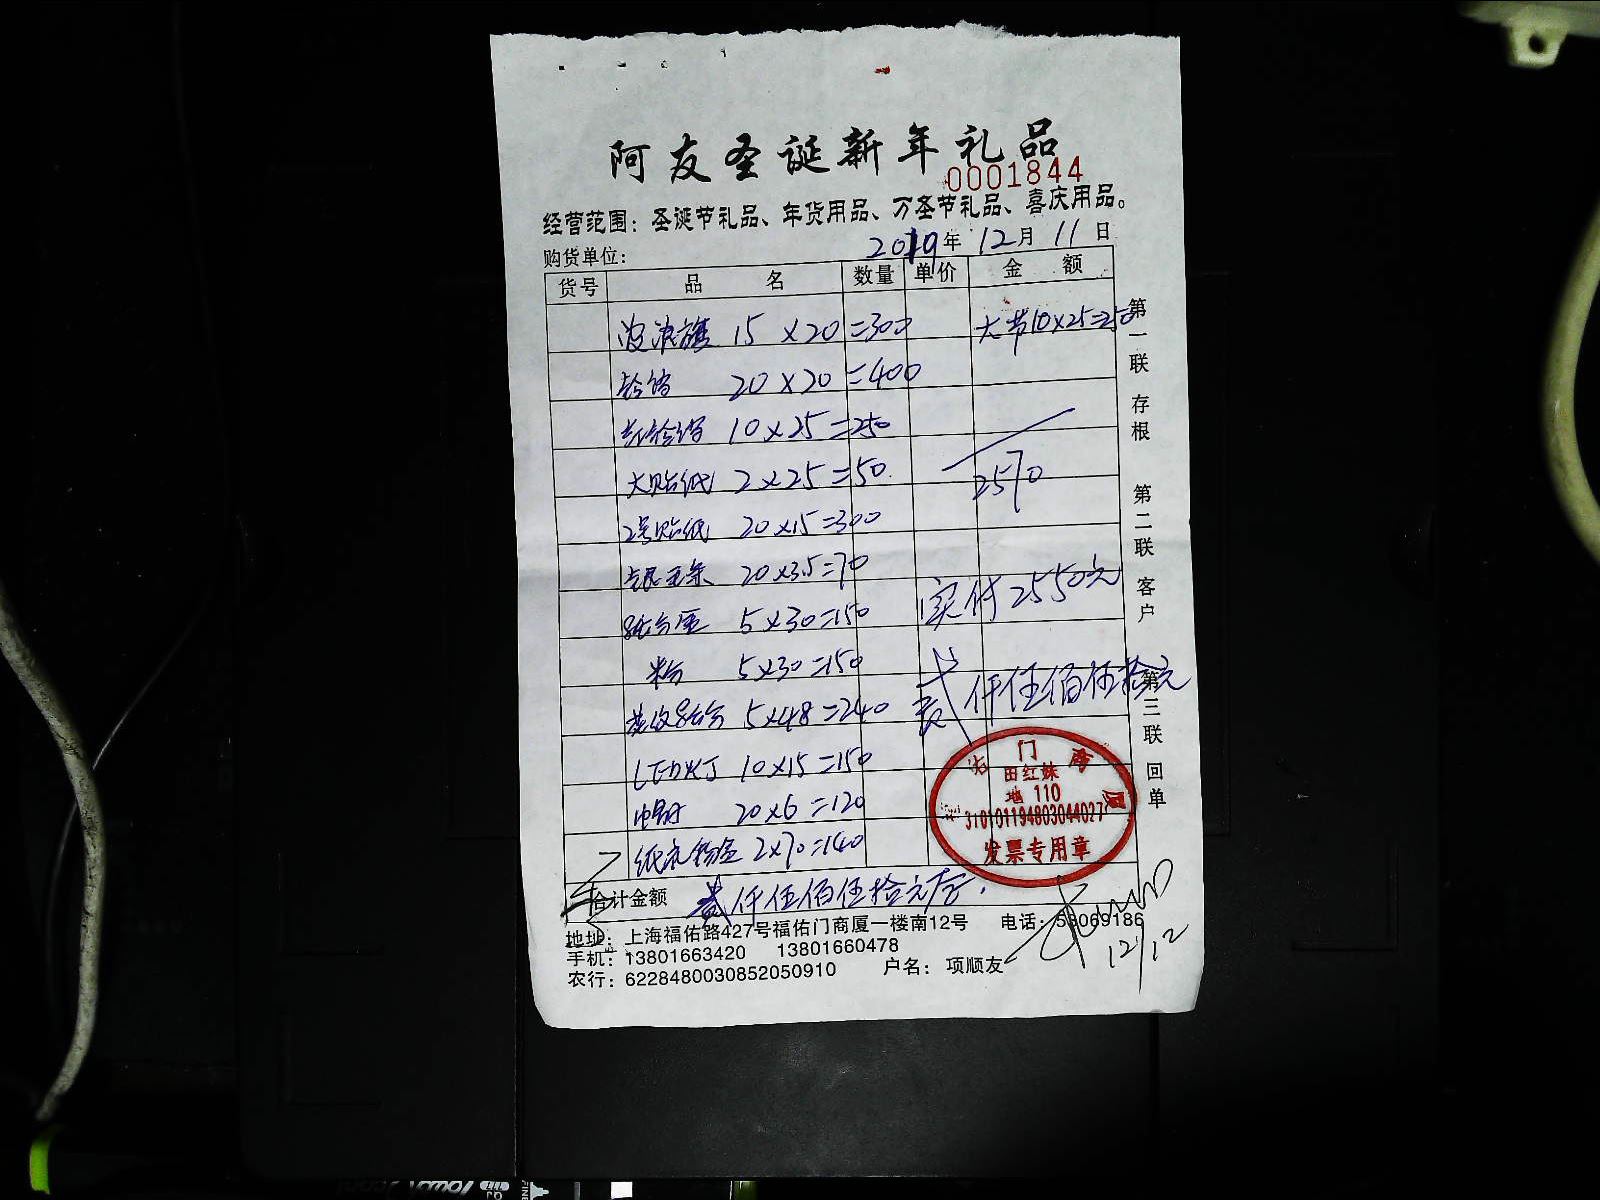 阿友圣诞新年礼品
0001844
经营范围：圣诞节礼品、年货用品、万圣节礼品、喜庆用品。
购货单位： 2019年 12月 11日
货号 品名 数量 单价 金额
波浪旗 15 x 20 =300 大节10x25=250
20 x 20 =400
10 x 25 =250
大贴纸 2 x 25 =50
2号贴纸 20 x15 =300 2570
20 x3.5=70
5 x 30 =150 实付 2550元
粉 5x30 =150
5x48 =240 贰仟伍佰伍拾元
LED灯 10 x15 =150
20 x6 =120
2x70=140
合计金额 贰仟伍佰伍拾元
地址：上海福佑路427号福佑门商厦一楼南12号 电话：58069186
手机：13801663420 13801660478
农行：6228480030852050910 户名：项顺友
12/12
第一联 存根 第二联 客户 第三联 回单
田红妹
地 110
310101194803044027
发票专用章